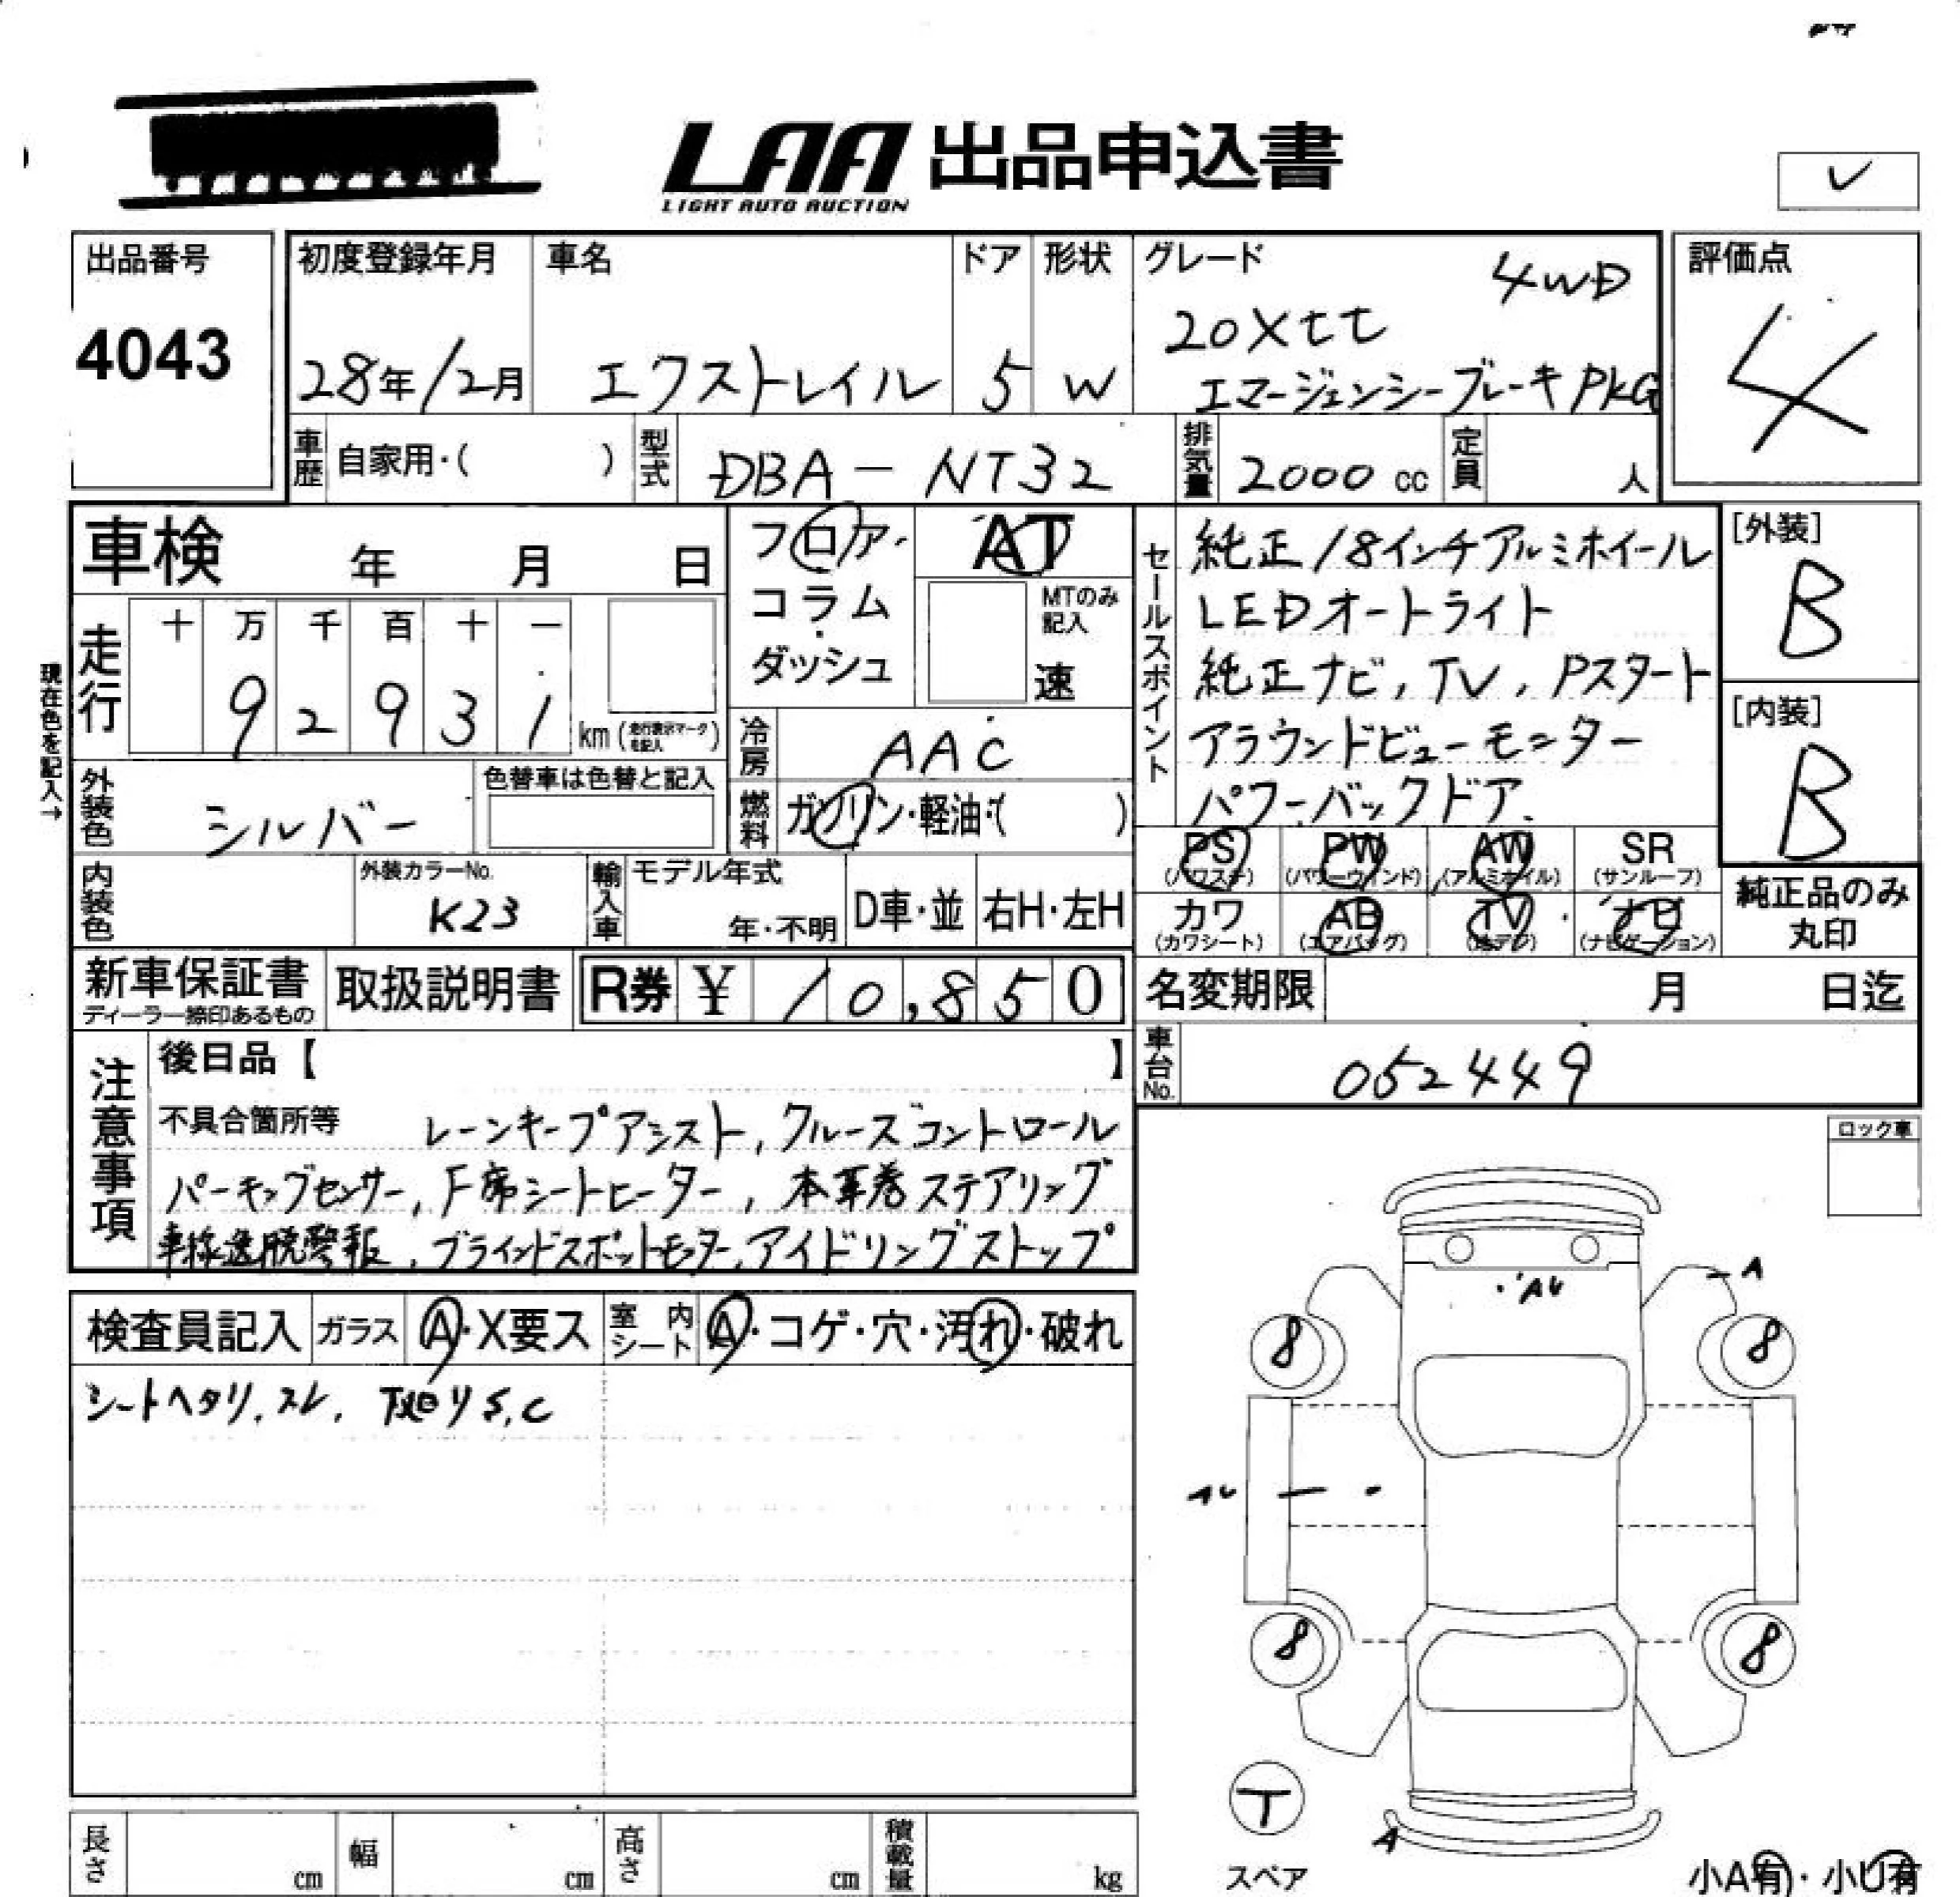 LAA 出品申込書
LIGHT AUTO AUCTION
出品番号
4043
初度登録年月
28年12月
車名
エクストレイル
ドア
5
形状
W
グレード
4WD
20Xtt
エマージェンシーブレーキPKG
評価点
4
車歴 自家用・( )
型式 DBA-NT32
排気量 2000 cc
定員 人
車検 年 月 日
フロア・
コラム・
ダッシュ
AT
MTのみ記入
速
セールスポイント
純正18インチアルミホイール
LEDオートライト
純正ナビ, TV, Pスタート
アラウンドビューモニター
パワーバックドア.
[外装]
B
[内装]
B
現在色を記入→
走行
十 万 千 百 十 一
9 2 9 3 1
km (走行表示マークを記入)
冷房 AAC
燃料 ガソリン・軽油・( )
外装色 シルバー
色替車は色替と記入
内装色
外装カラーNo.
K23
輸入車
モデル年式
年・不明
D車・並
右H・左H
PS (パワステ)
PW (パワーウィンド)
AW (アルミホイル)
SR (サンルーフ)
カワ (カワシート)
AB (エアバッグ)
TV (地デジ)
ナビ (ナビゲーション)
純正品のみ
丸印
新車保証書
ディーラー捺印あるもの
取扱説明書
R券 ¥ 10,850
名変期限 月 日迄
車台No. 052449
注意事項
後日品【 】
不具合箇所等 レーンキープアシスト, クルーズコントロール
パーキングセンサー, F席シートヒーター, 本革巻ステアリング
車線逸脱警報, ブラインドスポットモニター, アイドリングストップ
ロック車
検査員記入
ガラス A・X要ス
室内シート A・コゲ・穴・汚れ・破れ
シートヘタリ, スレ, 下回りS,C
AU
A
8
8
AU
8
8
T
スペア
A
小A有・小U有
長さ cm
幅 cm
高さ cm
積載量 kg